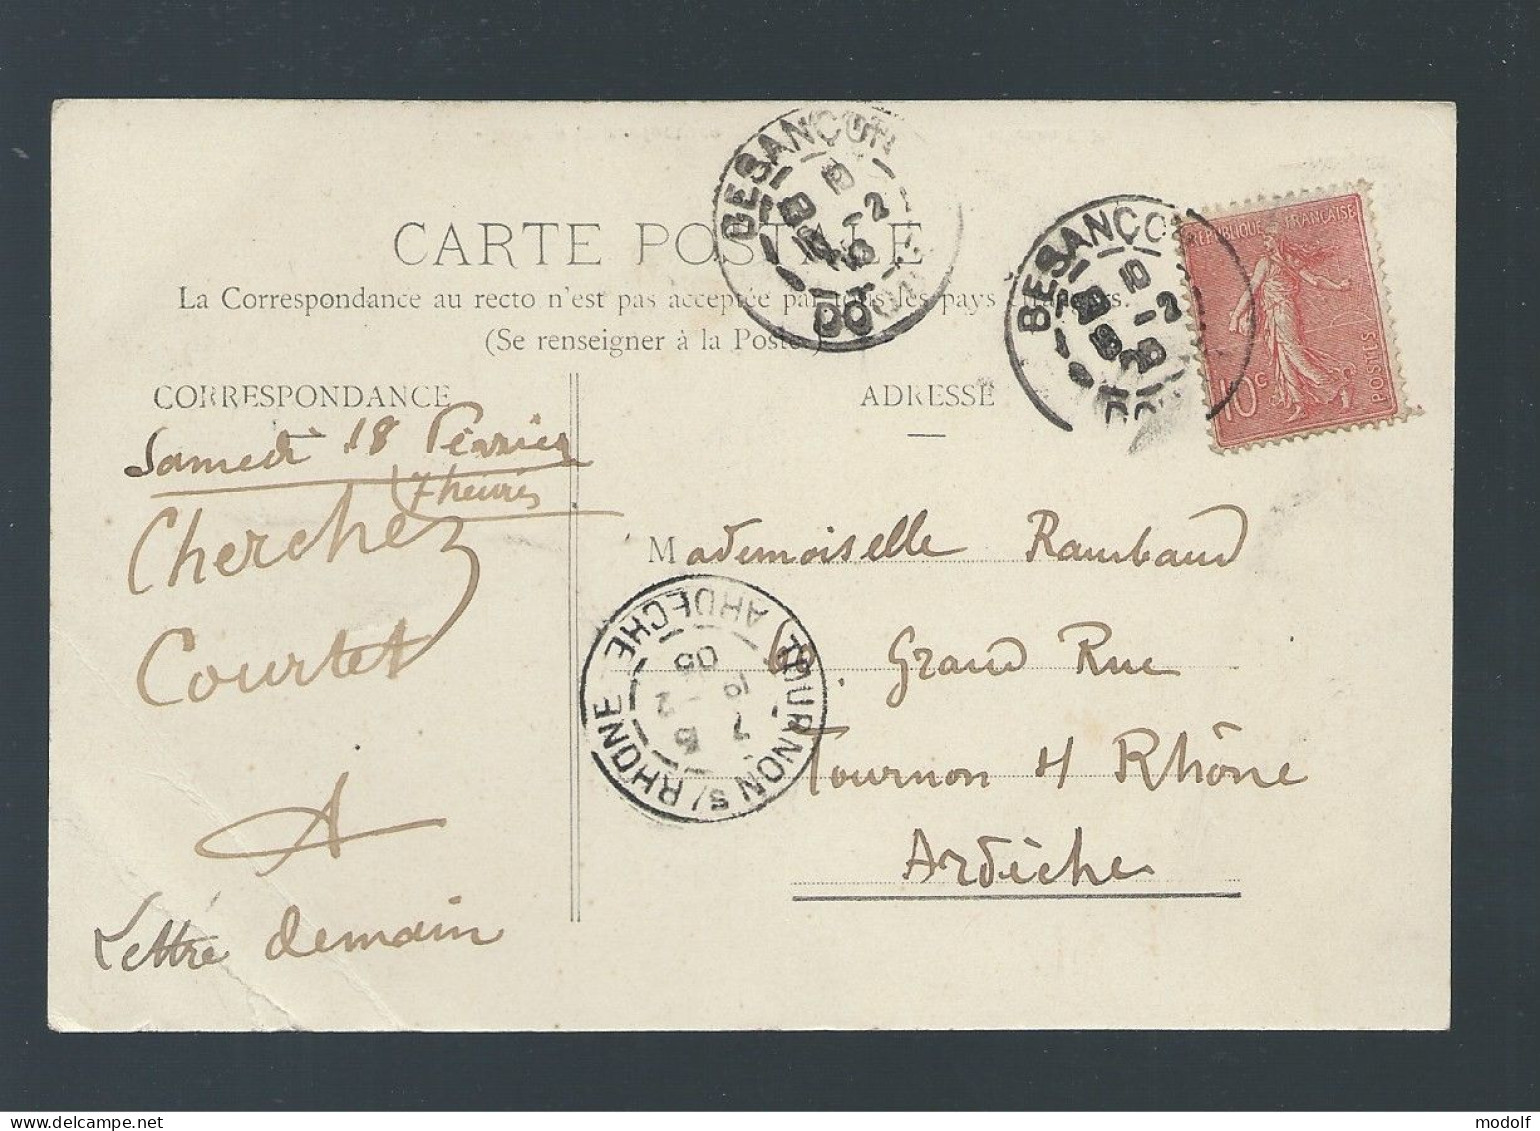 CARTE POSTALE
La Correspondance au recto n'est pas acceptée par tous les pays étrangers.
(Se renseigner à la Poste)
CORRESPONDANCE
ADRESSE
BESANÇON
DOUBS
BESANÇON
RÉPUBLIQUE FRANÇAISE
10c
POSTES
Samedi 18 Février
7 heures
Cherchez
Courtet
A
Lettre demain
Mademoiselle Rambaud
Grand Rue
Tournon s/ Rhône
Ardèche
TOURNON S/ RHONE ARDECHE
modolf